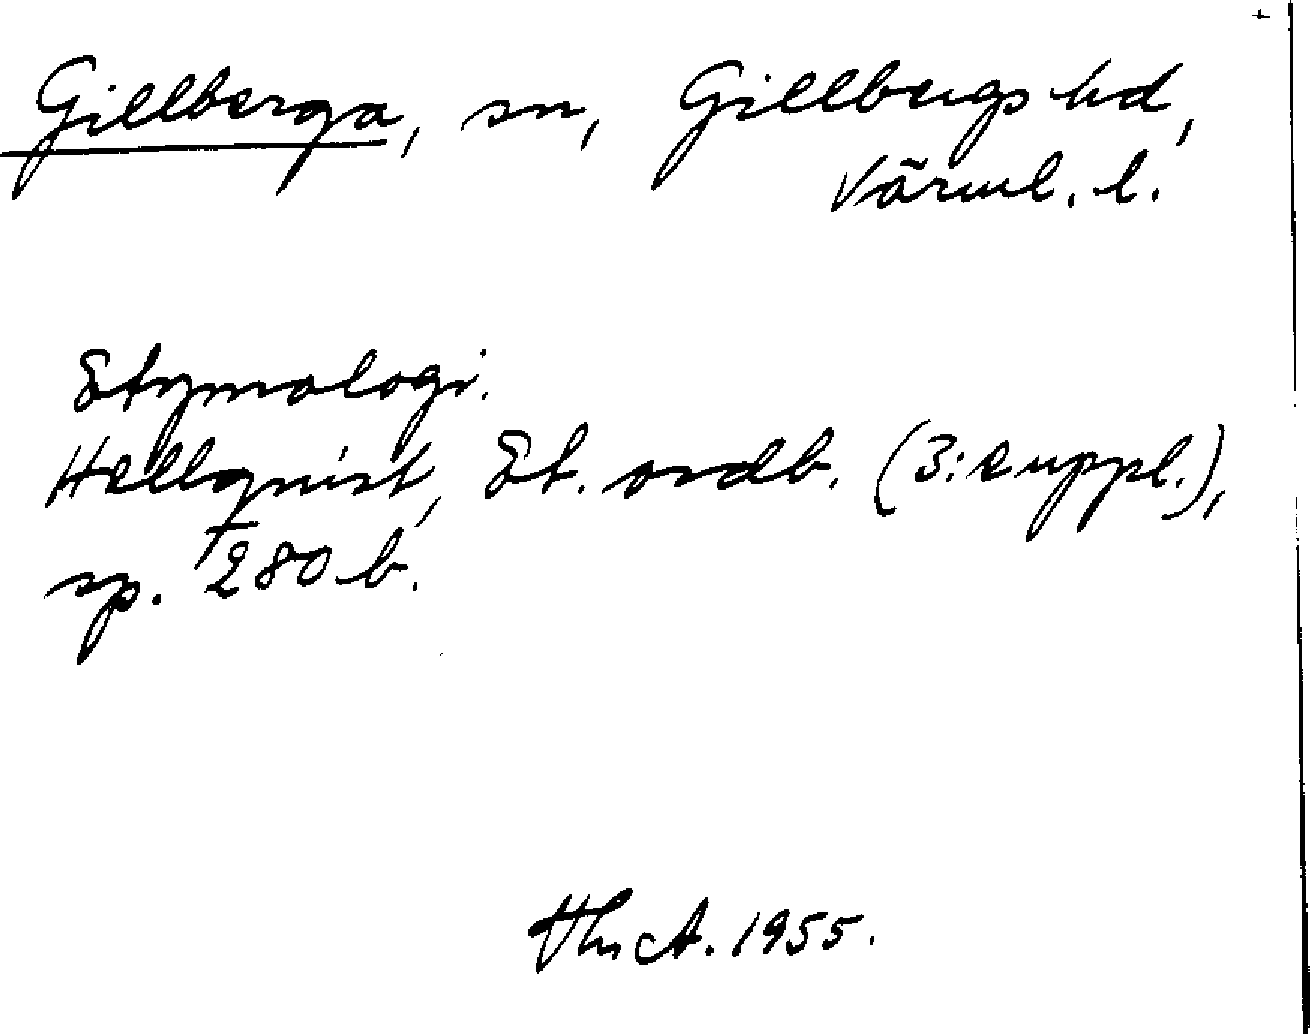 Gillberga, sn, Gillbergs hd,
Värml. l.
Etymologi.
Hellquist, Et. ordb. (3: suppl.),
sp. 1280 b.
A. 1955.